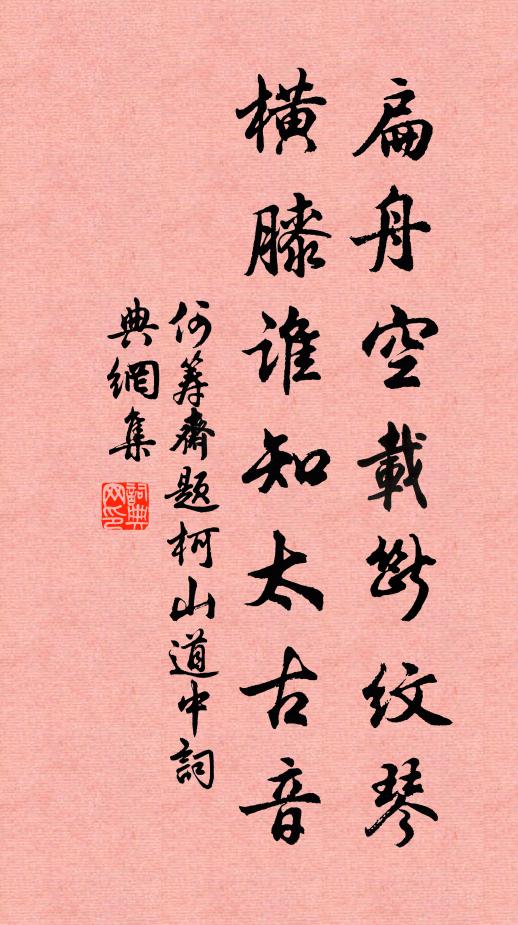 扁舟空載斷紋琴
橫膝誰知太古音
何籌齋題柯山道中詞
典網集
詞典网印